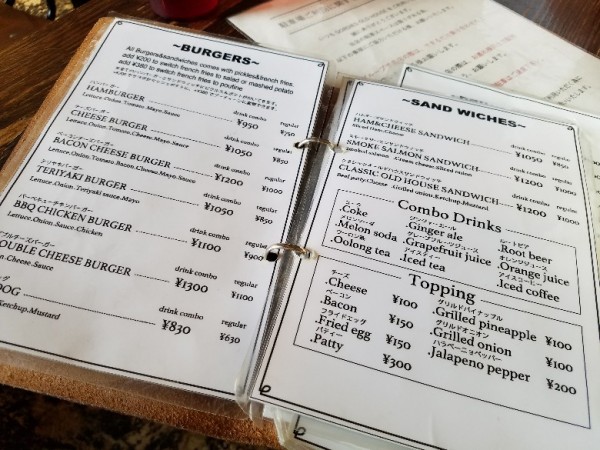 ~BURGERS~
All Burgers&sandwiches comes with pickles&french fries
add ¥200 to switch french fries to salad or mashed potato
add ¥380 to switch french fries to poutine
ハンバーガー
drink combo regular
HAMBURGER ¥950 ¥750
Lettuce.Onion.Tomato.Mayo.Sauce
チーズバーガー
drink combo regular
CHEESE BURGER ¥1050 ¥850
Lettuce.Onion.Tomato.Cheese.Mayo.Sauce
ベーコンチーズバーガー
drink combo regular
BACON CHEESE BURGER ¥1200 ¥1000
Lettuce.Onion.Tomato.Bacon.Cheese.Mayo.Sauce
テリヤキバーガー
drink combo regular
TERIYAKI BURGER ¥1050 ¥850
Lettuce.Onion.Teriyaki sauce.Mayo
バーベキューチキンバーガー
drink combo regular
BBQ CHICKEN BURGER ¥1100 ¥900
Lettuce.Onion.Sauce.Chicken
ブルチーズバーガー
drink combo regular
OUBLE CHEESE BURGER ¥1300 ¥1100
.Onion.Cheese.Sauce
ッグ
drink combo regular
OG ¥830 ¥630
Ketchup.Mustard
~SAND WICHES~
drink combo regular
HAM&CHEESE SANDWICH ¥1050 ¥850
Sliced Ham.Cheese
drink combo regular
SMOKE SALMON SANDWICH ¥1200 ¥1000
smoked salmon .Cream cheese.Sliced onion
drink combo regular
CLASSIC OLD HOUSE SANDWICH ¥1200 ¥1000
Beef patty.Cheese .Grilled onion.Ketchup.Mustard
Combo Drinks
コーラ ジンジャーエール ルートビア
.Coke .Ginger ale .Root beer
メロンソーダ グレープフルーツジュース オレンジジュース
.Melon soda .Grapefruit juice .Orange juice
ウーロン茶 アイスティー アイスコーヒー
.Oolong tea .Iced tea .Iced coffee
Topping
チーズ グリルドパイナップル
.Cheese ¥100 .Grilled pineapple ¥100
ベーコン グリルドオニオン
.Bacon ¥150 .Grilled onion ¥100
フライドエッグ ハラペーニョペッパー
.Fried egg ¥150 .Jalapeno pepper ¥200
パティー
.Patty ¥300